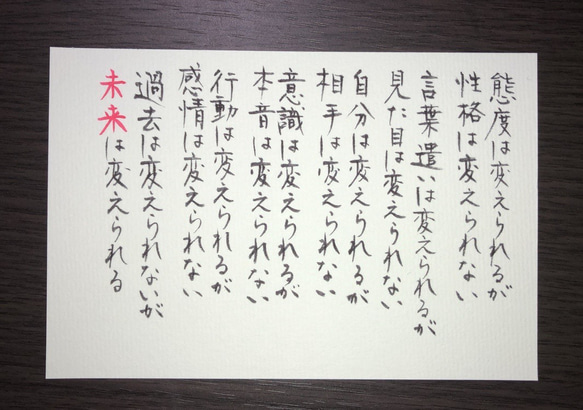 態度は変えられるが
性格は変えられない
言葉遣いは変えられるが
見た目は変えられない
自分は変えられるが
相手は変えられない
意識は変えられるが
本音は変えられない
行動は変えられるが
感情は変えられない
過去は変えられないが
未来は変えられる